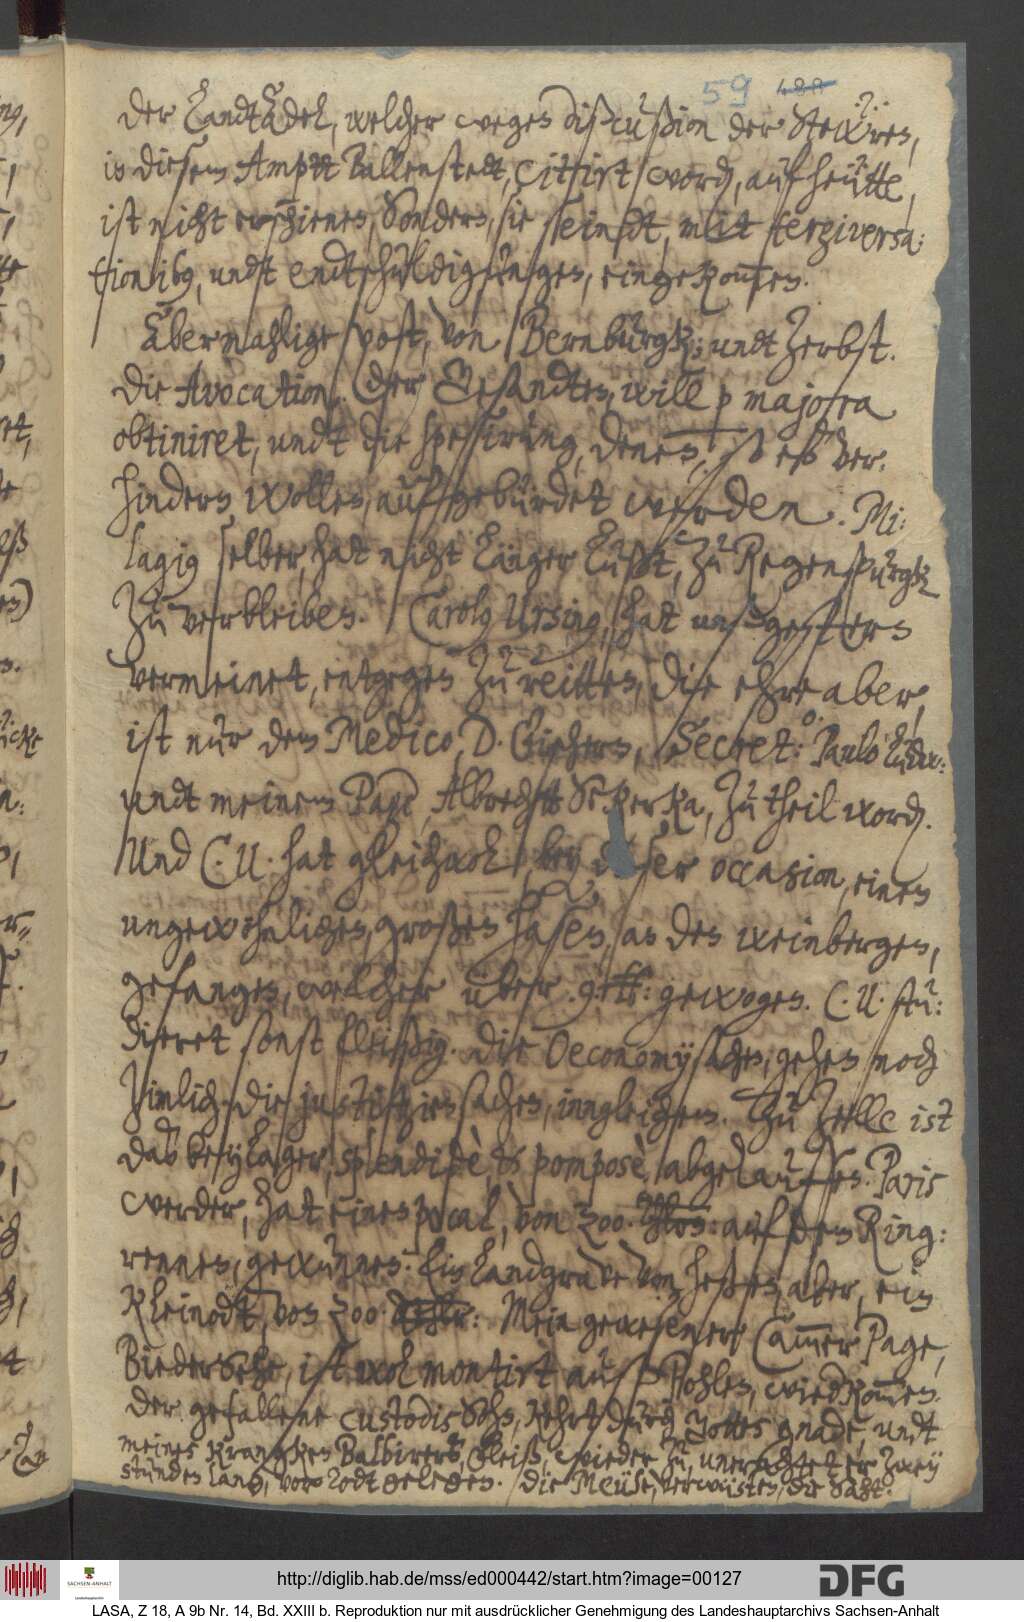 59 488
der LandtAdel, welcher wegen dißcußion der Steẅren,
in diesem Ampt Ballenstedt, citirt word, auf heütte,
ist nicht erschienen, Sondern, sie seindt, mit terziversa:
tionibq, undt endtschuldigungen, eingekom̅en.
Abermahlige post, von Bernburgk, undt Zerbst.
Die Avocation, der Gesandten, will p majora
obtiniret, undt die spesirung, denen, so eß ver:
hindern wollen, aufgebürdet werden. Mi:
lagiq selber, hat nicht länger lußt, zu Regenspurgk
zu verbleiben. Carolq Ursinq, hat unß gestern
vermeinet, entgegen zu reitten, die ehre aber,
ist nur dem Medico, D. Engelhardt, Secret: Paulo Ludw:
undt meinem Page, Albrecht Skerka, zu theil word.
Und C. U. hat gleichwol, bey dieser occasion, einen
ungewöhnlichen, großen hasen, an den weinbergen,
gefangen, welcher über 9 : gewogen. C. U. stu:
diret sonst fleißig. Die Oeconomysachen, gehen noch
zimlich. Die justitziensachen, inngleichem. Zu Zelle ist
das beylager, splendidè, & pomposè, abgelauffen. Paris
werder, hat einen pocal, von 200 : auf dem Ring:
rennen, gewunnen. Ein Landgrave von heßen, aber, ein
Kleinodt, von 300 : Mein gewesener Cam̅er Page,
Biedersehe, ist wol montirt auß Pohlen, wiedkom̅en.
der gefallene Custodis Sohn, kehrt, durch Gottes gnade, undt
meines krancken Balbirers, fleiß, wieder zu, unerachtet er zwey
stunden lang, vor todt gelegen. Die Meüse, verwüsten, die Saat.
http://diglib.hab.de/mss/ed000442/start.htm?image=00127
SACHSEN-ANHALT
DFG
LASA, Z 18, A 9b Nr. 14, Bd. XXIII b. Reproduktion nur mit ausdrücklicher Genehmigung des Landeshauptarchivs Sachsen-Anhalt